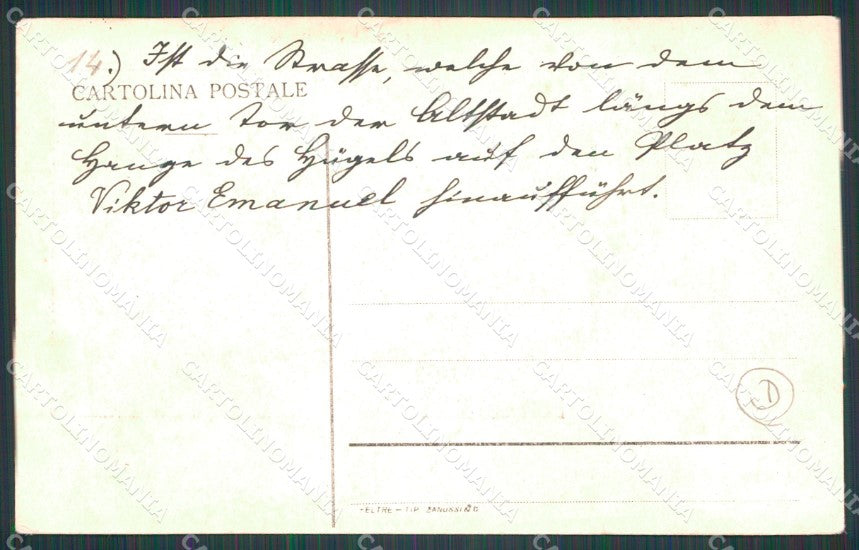 14.) Ist die Strasse, welche von dem
CARTOLINA POSTALE
untern Tor der Altstadt längs dem
Hange des Hügels auf den Platz
Viktor Emanuel hinaufführt.
D
FELTRE - TIP. ZANUSSI
CARTOLINOMANIA